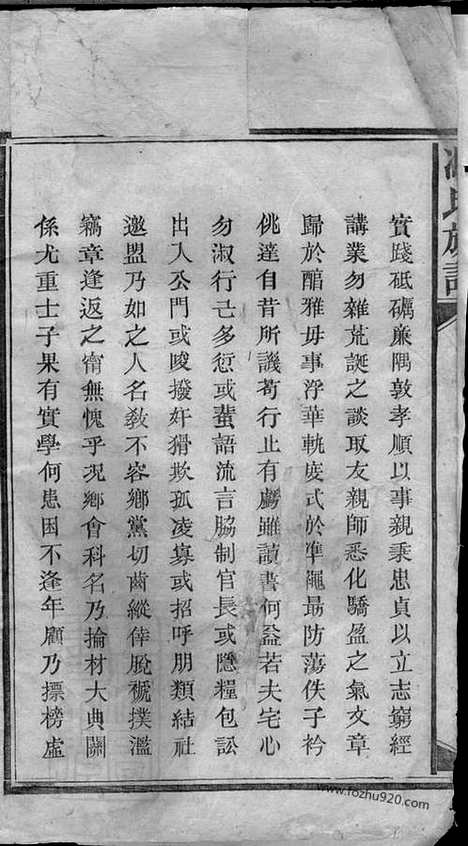 實踐砥礪廉隅敦孝順以事親秉忠貞以立志窮經
講業勿雜荒誕之談取友親師悉化驕盈之氣文章
歸於醇雅毋事浮華軌度式於準繩最防蕩佚子衿
佻達自昔所譏苟行止有虧雖讀書何益若夫宅心
勿淑行己多愆或蜚語流言脇制官長或隱糧包訟
出入公門或唆撥奸猾欺孤凌寡或招呼朋類結社
邀盟乃如之人名敎不容鄉黨切齒縱倖脫褫撲濫
竊章逢返之甯無愧乎况鄉會科名乃掄材大典關
係尤重士子果有實學何患困不逢年顧乃摽榜虛
氏族譜
www.fozhu920.com